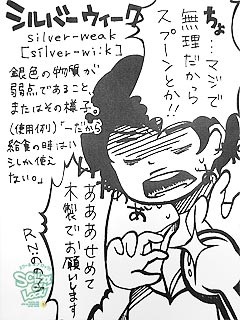 シルバーウィーク
silver-weak
[silver-wi:k]
銀色の物質が
弱点であること、
またはその様子。
(使用例)「―だから
給食の時はい
しか使え
ない。」
ちょ…マジで
無理だから
スプーンとか!!
あああせめて
木製でお願いします